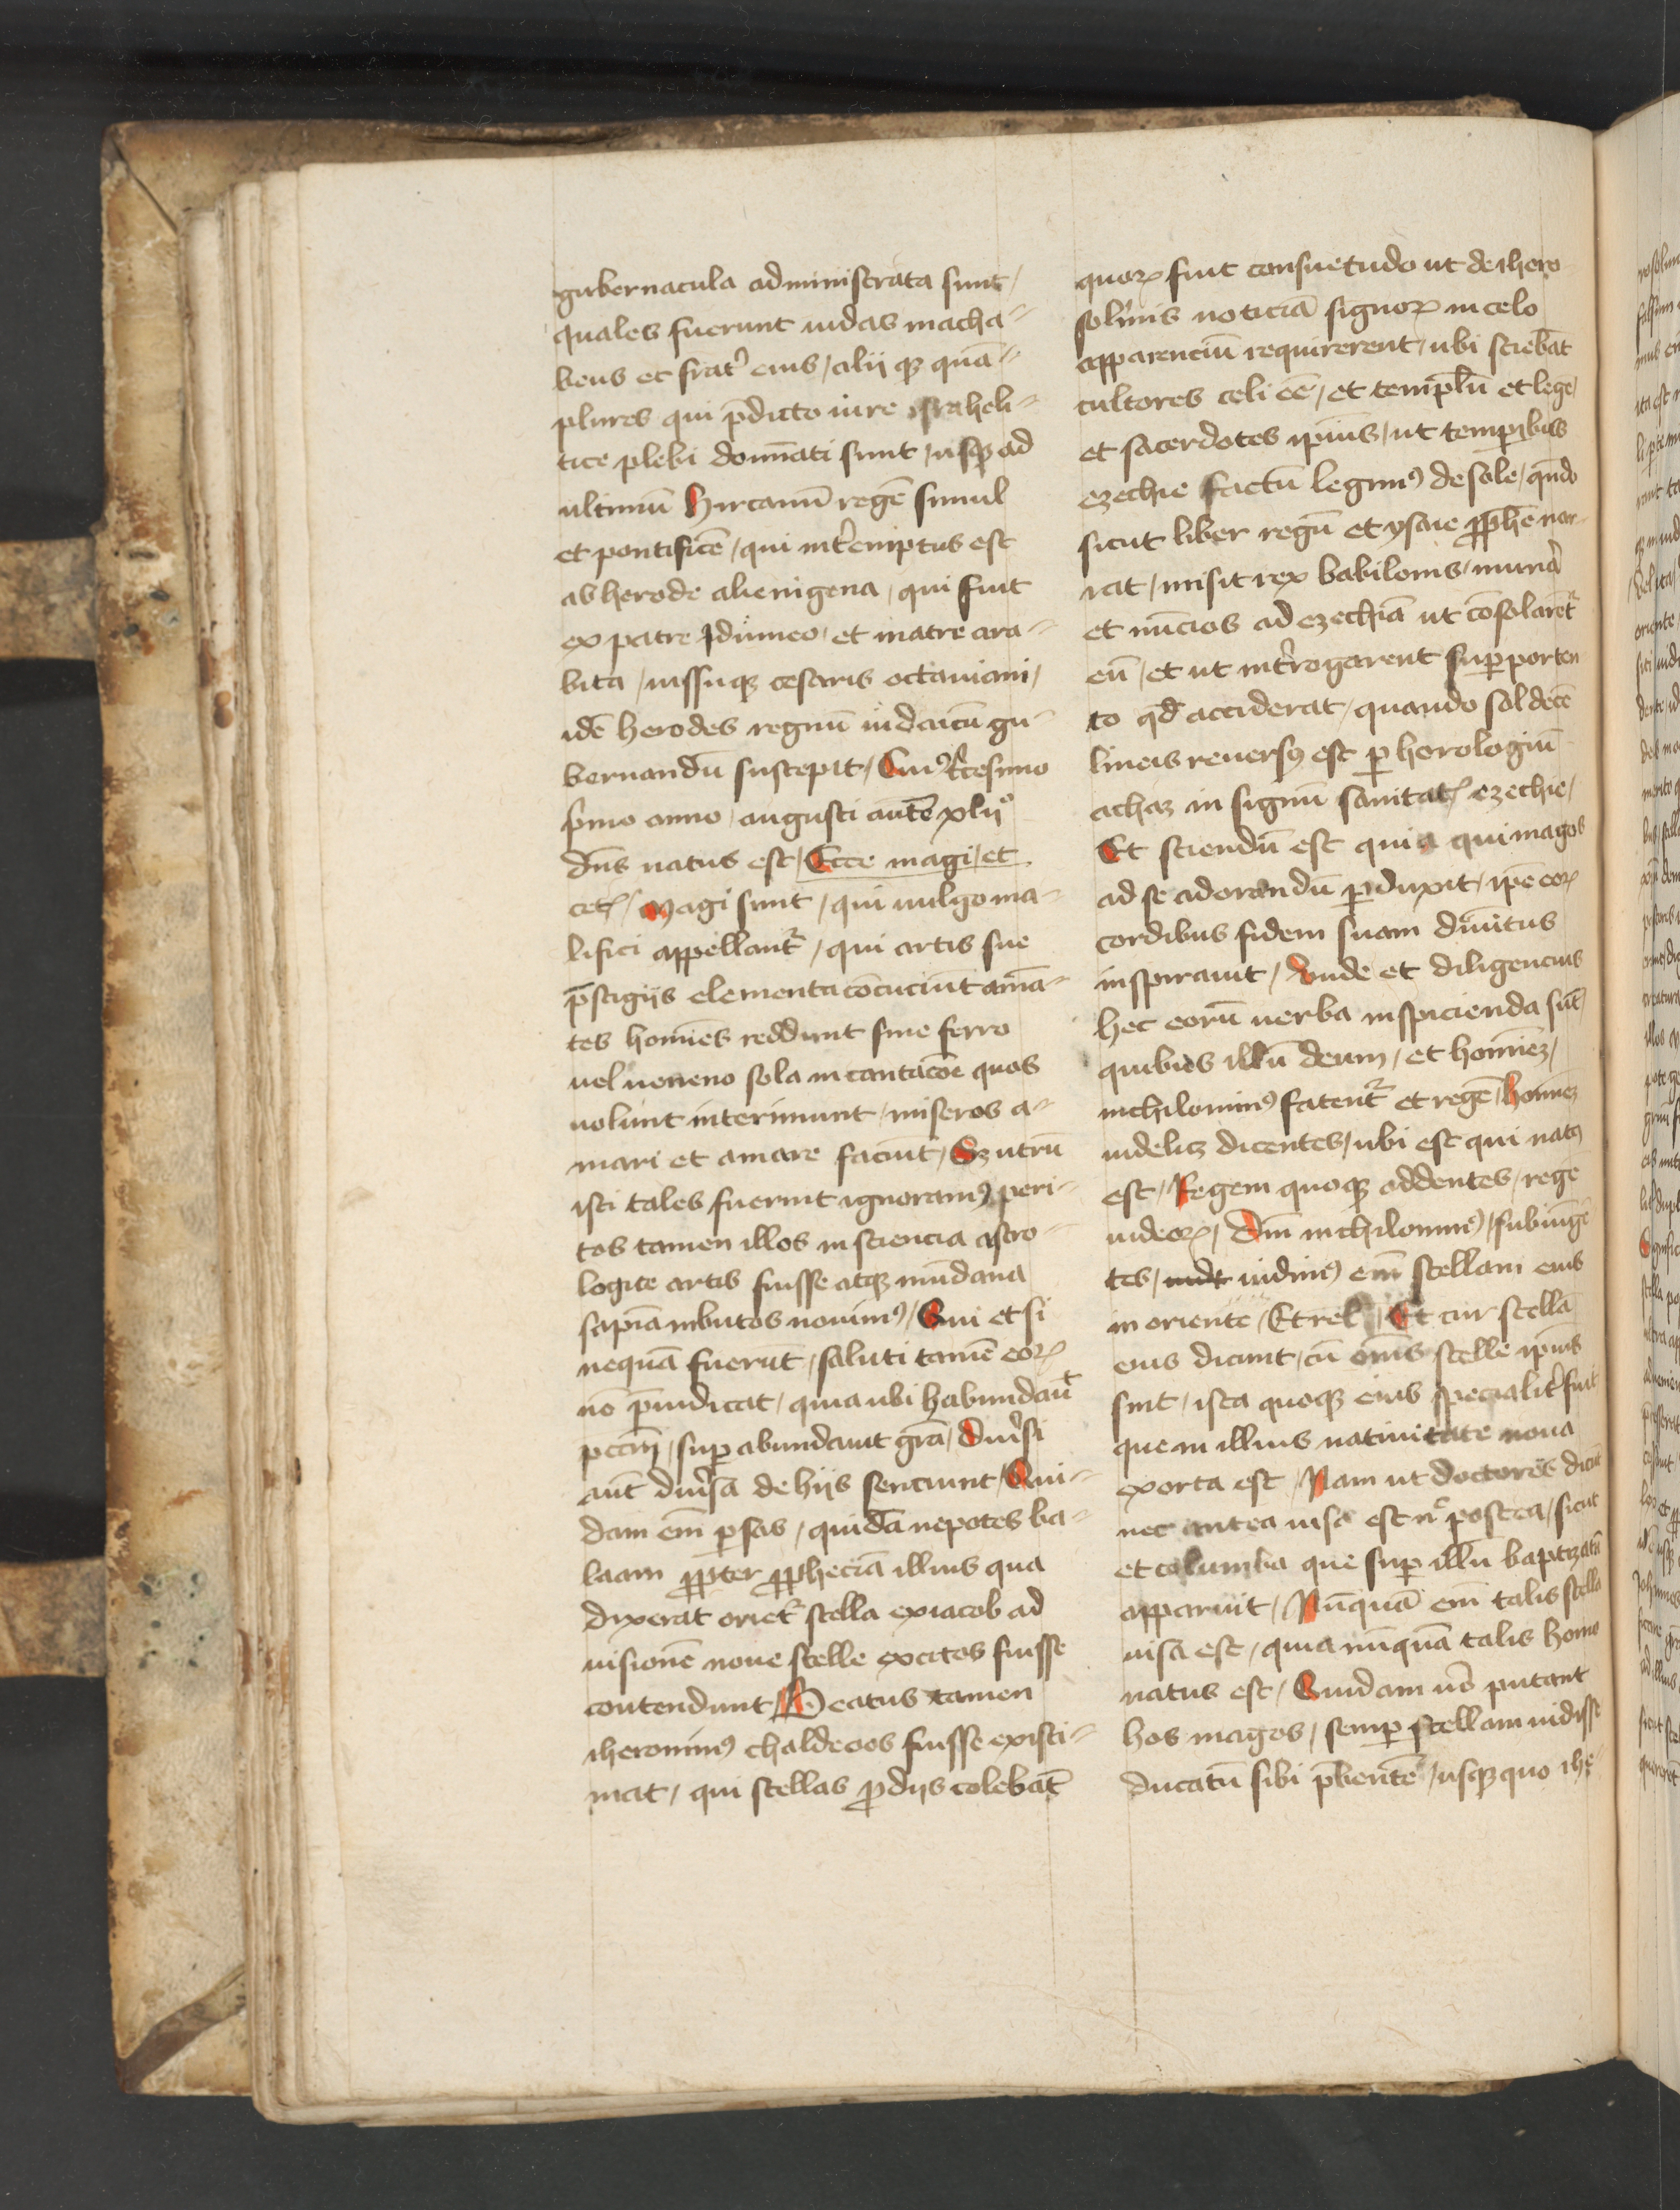 gubernacula administrata sunt /
quales fuerunt iudas macha-
beus et frat᷒ eius / alij qꝫ quā-
plures qui p̄dicto iure israheli-
tice plebi domīati sunt / usqꝫ ad
ultimū hircanū regē simul
et pontificē / qui int᷒emptus est
ab herode alienigena / qui fuit
ex patre Idumeo / et matre ara-
bita / iussuqꝫ cesaris octauiani /
idē herodes regnū iudaicū gu-
bernandū suscepit / Cuiꝰ tͥcesimo
pͥmo anno / augusti autē xlij°
dn̄s natus est / Ecce magi / et
cetꝭ / Magi sunt / qui uulgo ma-
lifici appellantᷣ / qui artis sue
p̄stigijs elementa cōcuciūt amā-
tes homīes reddunt sine ferro
uel ueneno sola in cantacōe quos
uolunt interimunt / miseros a-
mari et amare faciūt / Sꝫ utrū
isti tales fuerint ignoramꝰ peri-
tos tamen illos in sciencia astro-
logice artis fuisse atqꝫ mūdana
sapiā inbutos nouimꝰ / Qui et si
nequā fuerūt / saluti tamē eoꝝ
nō p̄iudicat / quia ubi habundaūt
pctm̄ / suꝑ abundauit grā / Diu᷒si
aūt diu᷒sa de hijs senciunt / Qui-
dam em̄ ꝑsas / quidā nepotes ba-
laam ꝓpter ꝓpheciā illius qua
dixerat oriet᷑ stella ex iacob ad
uisionē noue stelle excitos fuisse
contendunt / Beatus tamen
iheronimꝰ chaldeos fuisse existi-
mat / qui stellas ꝓ dijs colebāt
quoꝝ fuit consuetudo ut de ihero
solimis noticiā signoꝝ in celo
apparenciū requirerent / ubi sciebāt
cultores celi eē / et templū et legē /
et sacerdotes ipīus / ut temꝑibus
ezechie factū legimꝰ de sole / qn̄do
sicut liber regū et ysaie ꝓphē nar-
rat / misit rex babilonis / muna᷒
et nūcios ad ezechiā ut cōsolarētᷣ
eū / et ut int᷒rogarent suꝑ porten
to qd̄ acciderat / quando sol decē
lineis reuersꝰ est ꝑ horologiū
achaz in signū sanitatꝭ ezechie /
Et sciendū est quia qui magos
ad se adorandū ꝑduxit / ipē eoꝝ
cordibus fidem suam diuītus
inspirauit / Unde et diligencius
hec eorū uerba inspicienda sūt /
quibus illū deum / et homīeꝫ /
nichilominꝰ fatentᷣ et regē / homīeꝫ
uidelicꝫ dicentes / ubi est qui natꝰ
est / Regem quoqꝫ addentes / regē
iudeoꝝ / Dm̄ nichilominꝰ / subiūgē
tes / uidimꝰ em̄ stellam eius
in oriente / Et rel / Et cur stellā
eius dicunt / cū om̄s stelle ipīus
sint / ista quoqꝫ eius specialit᷒ fuit
que in illius natiuitate noua
exorta est / Nam ut doctores dicūt
nec antea uisa est nͨ postea / sicut
et columba que suꝑ illū baptizatū
apparuit / Nūquā em̄ talis stella
uisa est / quia nūquā talis homo
natus est / Quidam u᷒o putant
hos magos / semꝑ stellam uidisse
ducatū sibi p̄bentē / usqꝫquo ihe-